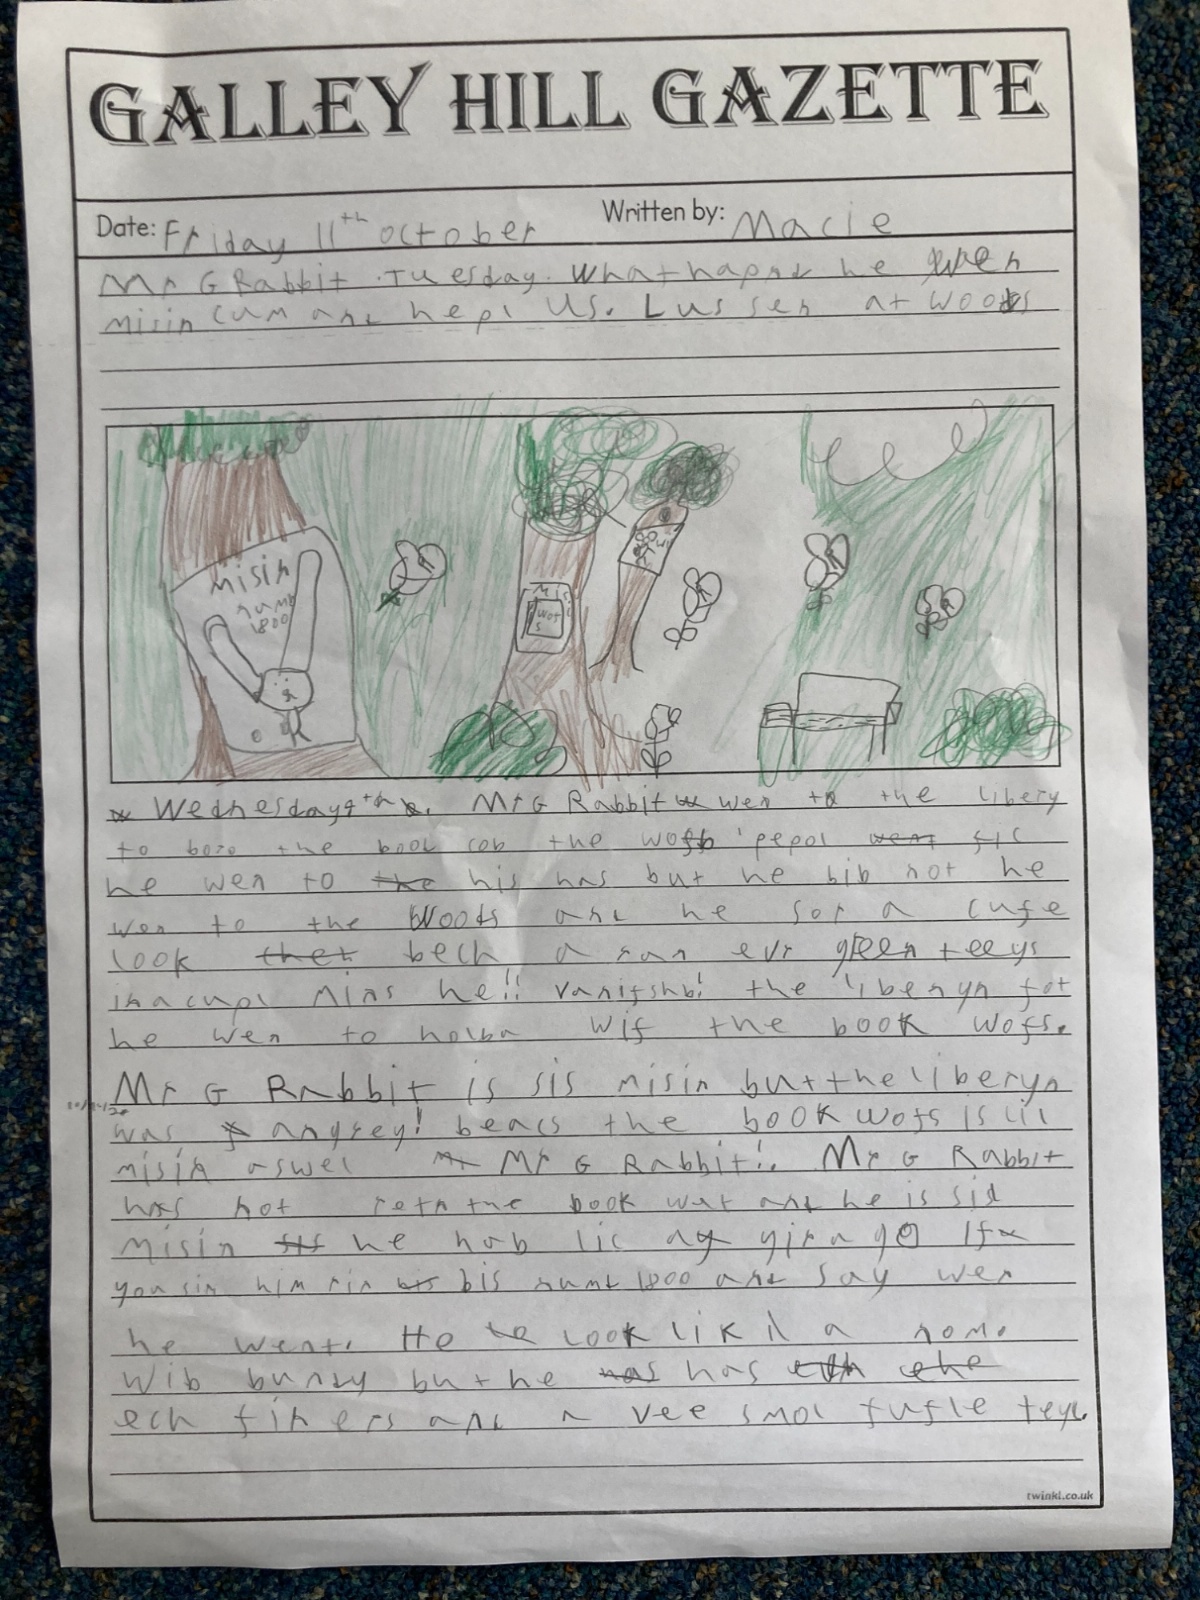 GALLEY HILL GAZETTE
Date: Friday 11th october Written by: Macie
Mr G Rabbit. Tuesday. What hapnd he wen
misin cum and hepl Us. Lus sen at woods
misin
numb
1800
Wednesday 9th. Mr G Rabbit wen to the libery
to boro the book cob the pepol
he wen to his has but he bib not he
wen to the Woods and he sor a cufe
look bech a ran evr green teeys
in a cupl mins he!! vanifshb! the liberyn fot
he wen to holba wif the book wofs.
Mr G Rabbit is sis misin but the liberyn
was angrey! beacs the book wofs is lil
misin aswel Mr G Rabbit!. Mr G Rabbit
has not retn the book wat and he is sid
misin he hab lic If
you sin him rin bis numb 1800 and say wer
he went. He look likil a nom.
wib bunzy but he has
ech finers and a vee smol fufle teyl.
twinkl.co.uk